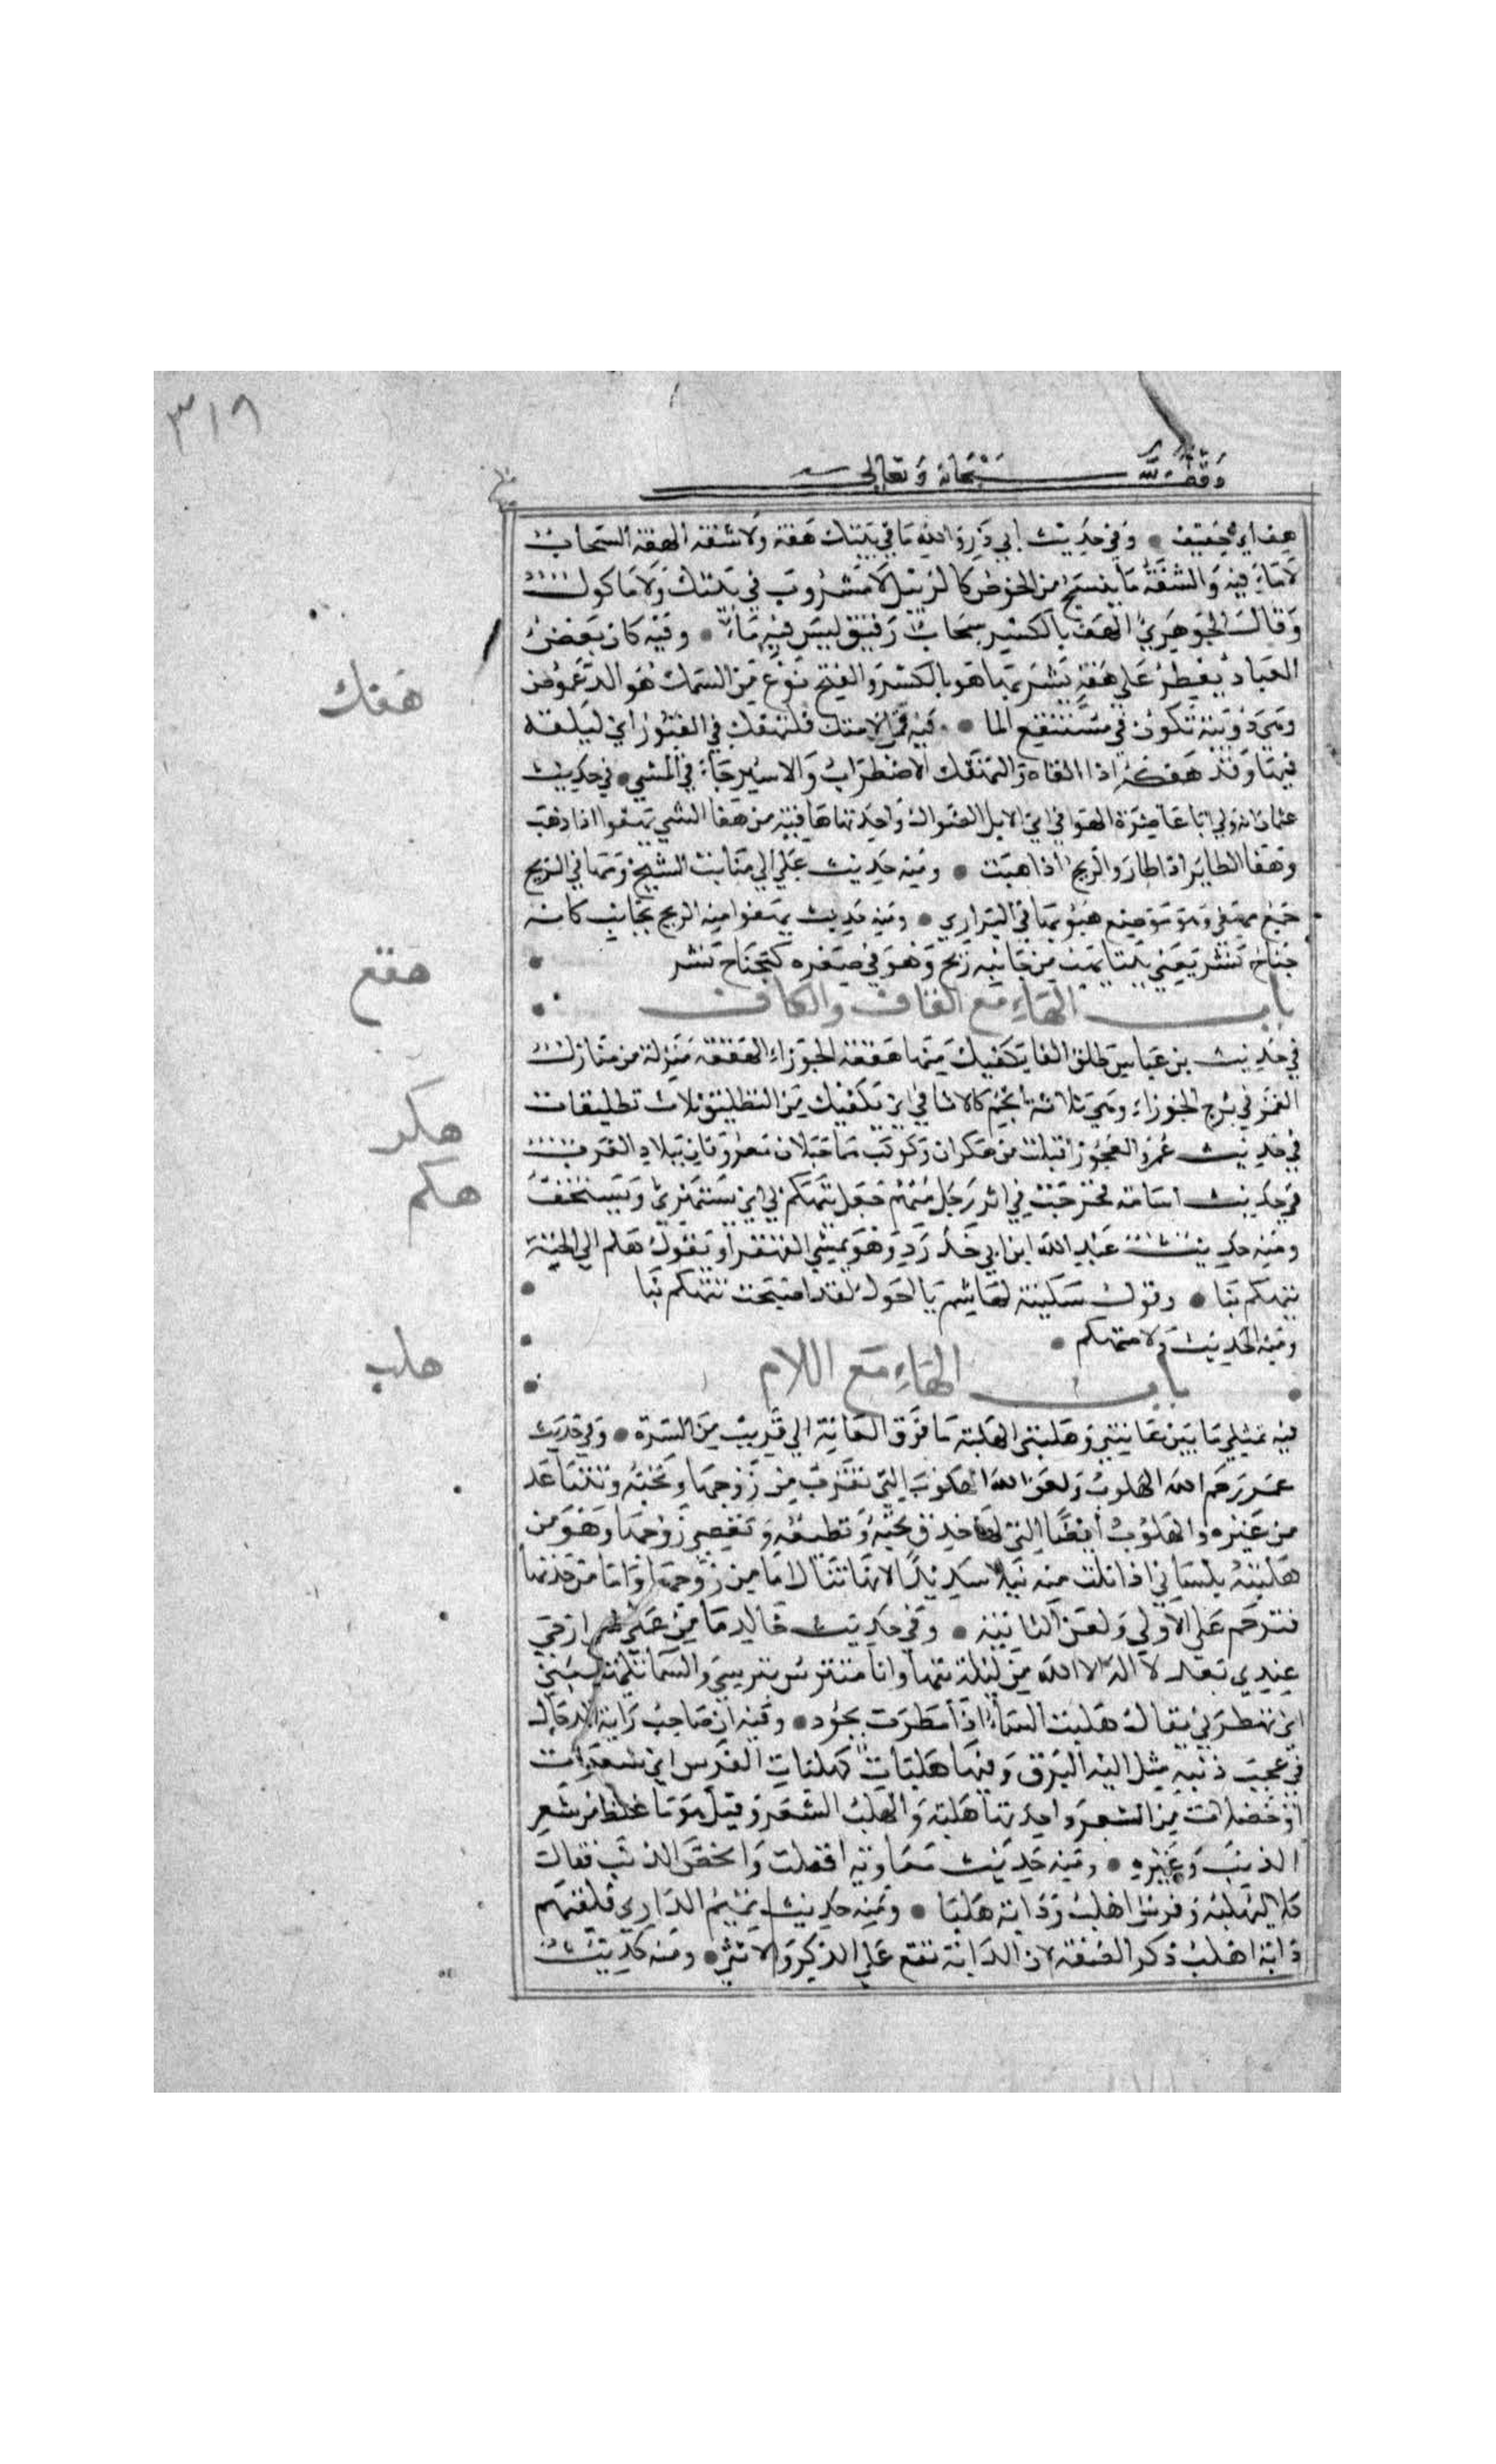 ٣١٩
وقف لله سبحانه وتعالى
هف اي خفيف • وفي حديث ابي ذر والله ما في بيتك هفة ولا سفة الهفة السحاب
لا ماء فيه والسفة ما ينسج من الخوص كالزنبيل لا مشروب في بيتك ولا ماكول
وقال الجوهري الهف بالكسر سحاب رقيق ليس فيه ماء • وفيه كان بعض
العباد يفطر على هفة يشويها هو بالكسر والفتح نوع من السمك هو الدعموص
وهي دويبة تكون في مستنقع الما • فيه قل لامتك فلتهفك في القبور اي لتلقه
فيها وقد هفكه اذا القاه والتهفك الاضطراب والاسترخاء في المشي • في حديث
عثمان انه ولي ابا غاضرة الهوافي اي الابل الضوال واحدتها هافية من هفا الشي يهفوا اذا ذهب
وهفا الطاير اذا طار والريح اذا هبت • ومنه حديث علي الي منابت الشيح ومهافي الريح
جمع مهفي وهو موضع هبوبها في البراري • ومنه حديث يهفوا منه الريح بجانب كانه
جناح نسر يعني بيتا تهب من جانبه ريح وهو في صغره كجناح نسر
باب الهاء مع القاف والكاف
في حديث بن عباس طلق الفا يكفيك منها هقعة الجوزاء الهقعة منزلة من منازل
القمر في برج الجوزاء وهي ثلاثة انجم كالاثافي اي يكفيك من التطليق ثلاث تطليقات
في حديث عمر والعجوز اقبلت من هكران وكوكب هما جبلان معروفان ببلاد العرب
في حديث اسامة فخرجت في اثر رجل منهم فجعل يتهكم بي اي يستهزئ ويستخف
ومنه حديث عبد الله ابن ابي حدرد وهو يمشي القهقرا ويقول هلم الي الجنة
يتهكم بنا • وقول سكينة لهاشم يا احول لقد اصبحت تتهكم بنا
ومنه الحديث ولا متهكم •
باب الهاء مع اللام
فيه يمتلي ما بين عانتي وهلبتي الهلبة ما فوق العانة الي قريب من السرة • وفي حديث
عمر رحم الله الهلوب ولعن الله الهلوب التي تقترب من زوجها وتحبه وتتباعد
من غيره والهلوب ايضا التي لها خدن تحبه وتطيعه وتعصي زوجها وهو من
هلبته بلساني اذا نلت منه نيلا شديدا لانها تنال اما من زوجها واما من خدنها
فترحم على الاولي ولعن الثانية • وفي حديث خالد ما من عملي شي ارجي
عندي بعد لا اله الا الله من ليلة بتها وانا متترس بترسي والسما تهلبني
اي تمطرني يقال هلبت السماء اذا امطرت بجود • وفيه ان صاحب راية الدجال
في عجب ذنبه مثل الية البرق وفيها هلبات كهلبات الفرس اي شعرات
او خصلات من الشعر واحدتها هلبة والهلب الشعر وقيل هو ما غلظ من شعر
الذنب وغيره • ومنه حديث معاوية افلت وانحص الذنب فقال
كلا انه لبهلبه وفرس اهلب ودابة هلبا • ومنه حديث تميم الداري فلقيهم
دابة اهلب ذكر الصفة لان الدابة تقع على الذكر والانثي • ومنه حديث
هفك
هقع
هكر
هكم
هلب